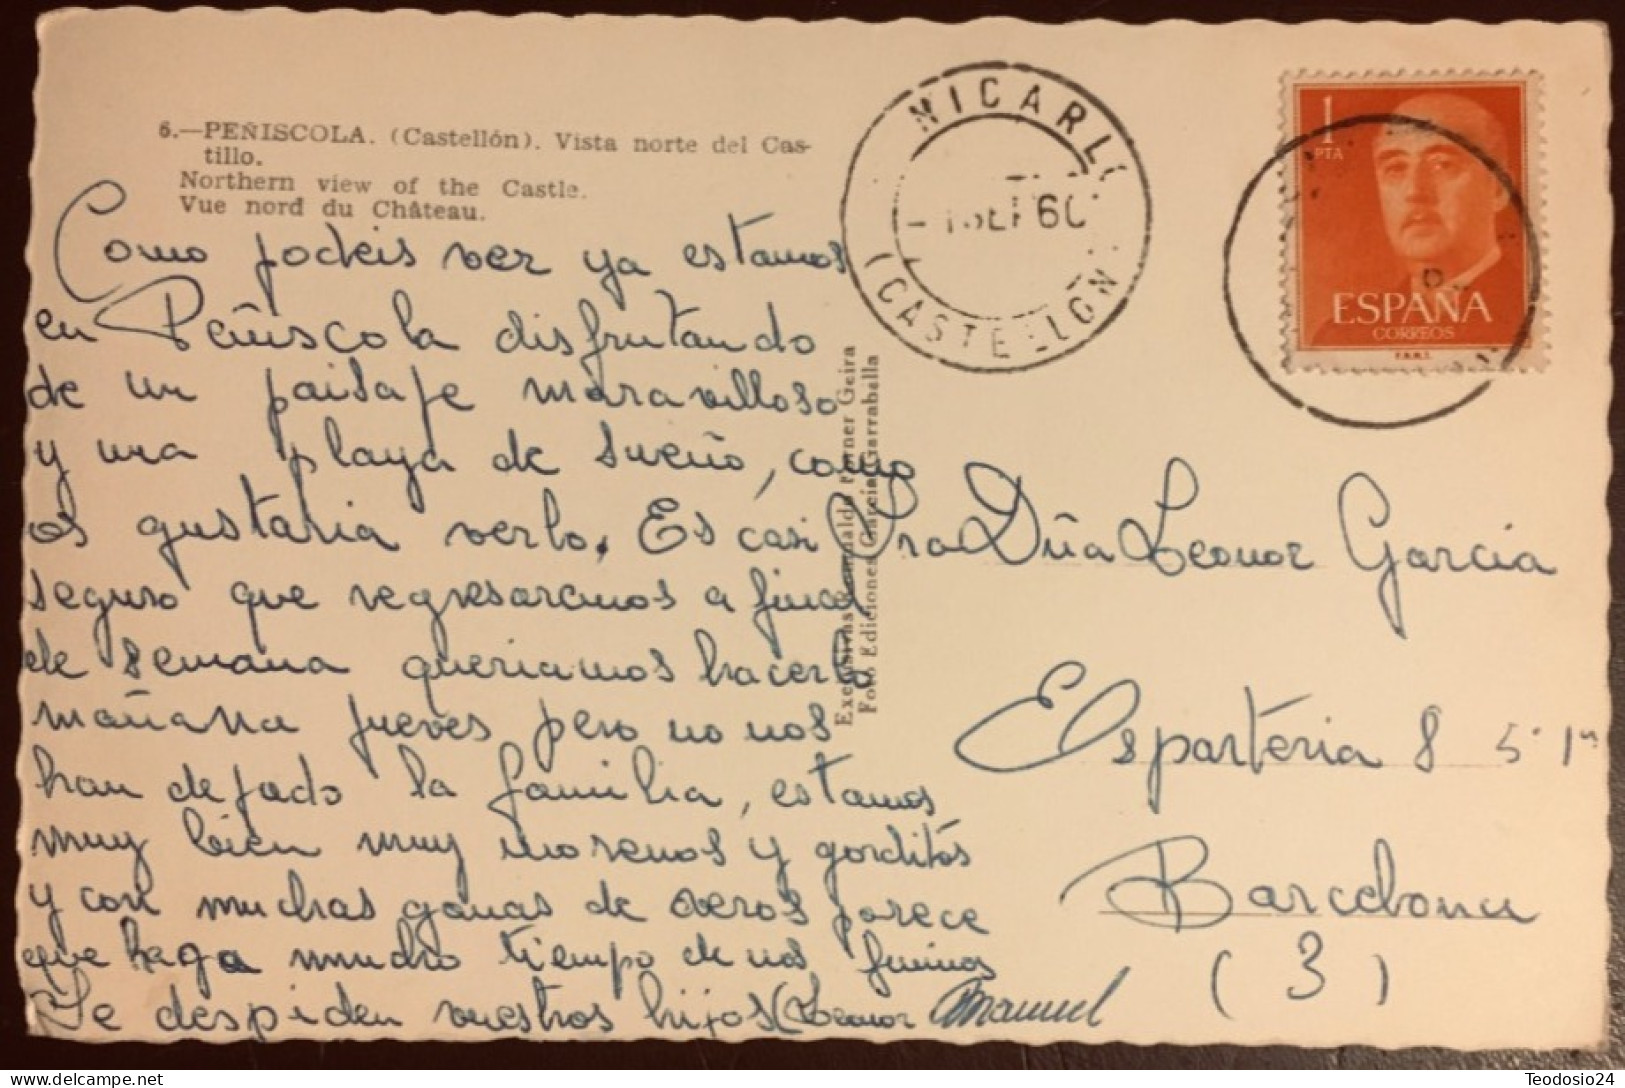 6.—PEÑISCOLA. (Castellón). Vista norte del Cas-
tillo.
Northern view of the Castle.
Vue nord du Château.
Como podeis ver ya estamos
en Peñiscola disfrutando
de un paisaje maravilloso
y una playa de sueño, como
os gustaria verlo. Es casi
seguro que regresaremos a final
de semana queriamos hacerlo
mañana jueves pero no nos
han dejado la familia, estamos
muy bien muy morenos y gorditos
y con muchas ganas de veros parece
que haga mucho tiempo de nos fuimos
Se despiden vuestros hijos (Leonor Manuel
Foto Ediciones García Garraballa
NICARL
1 SEP 60
(CASTELLON)
1
PTA
ESPAÑA
CORREOS
F.N.M.T.
Sra Dña Leonor García
Esparteria 8 5º 1ª
Barcelona
(3)
Teodosio24